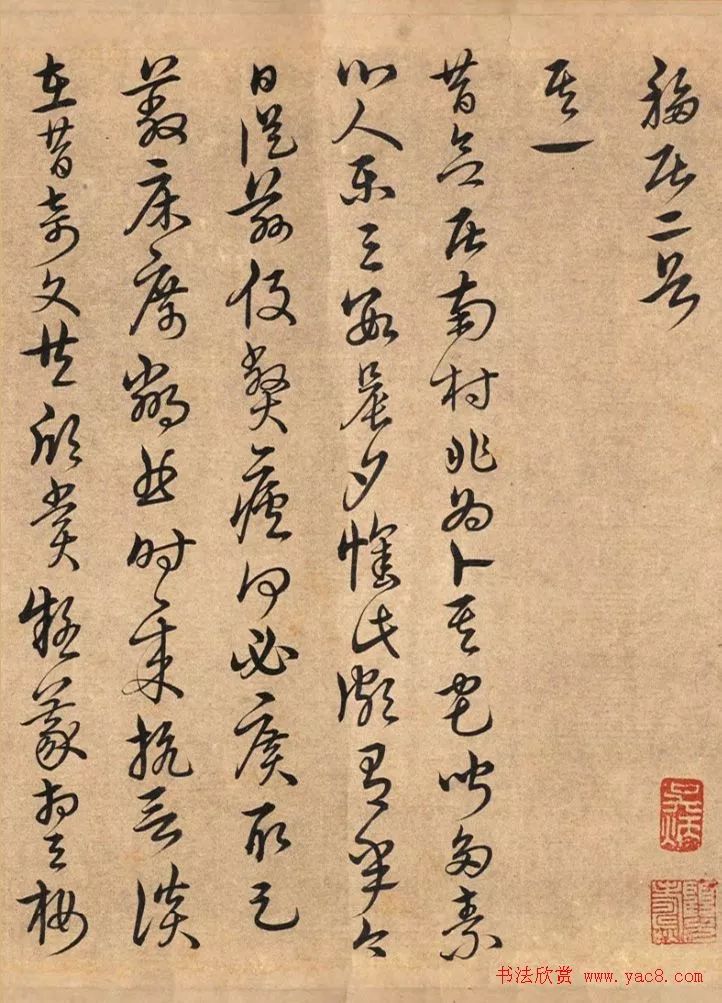 移居二首
其一
昔欲居南村非為卜其宅聞多素
心人樂與數晨夕懷此頗有年今
日從茲役弊廬何必廣取足
蔽床席鄰曲時々來抗言談
在昔奇文共欣賞疑義相與析
书法欣赏 www.yac8.com